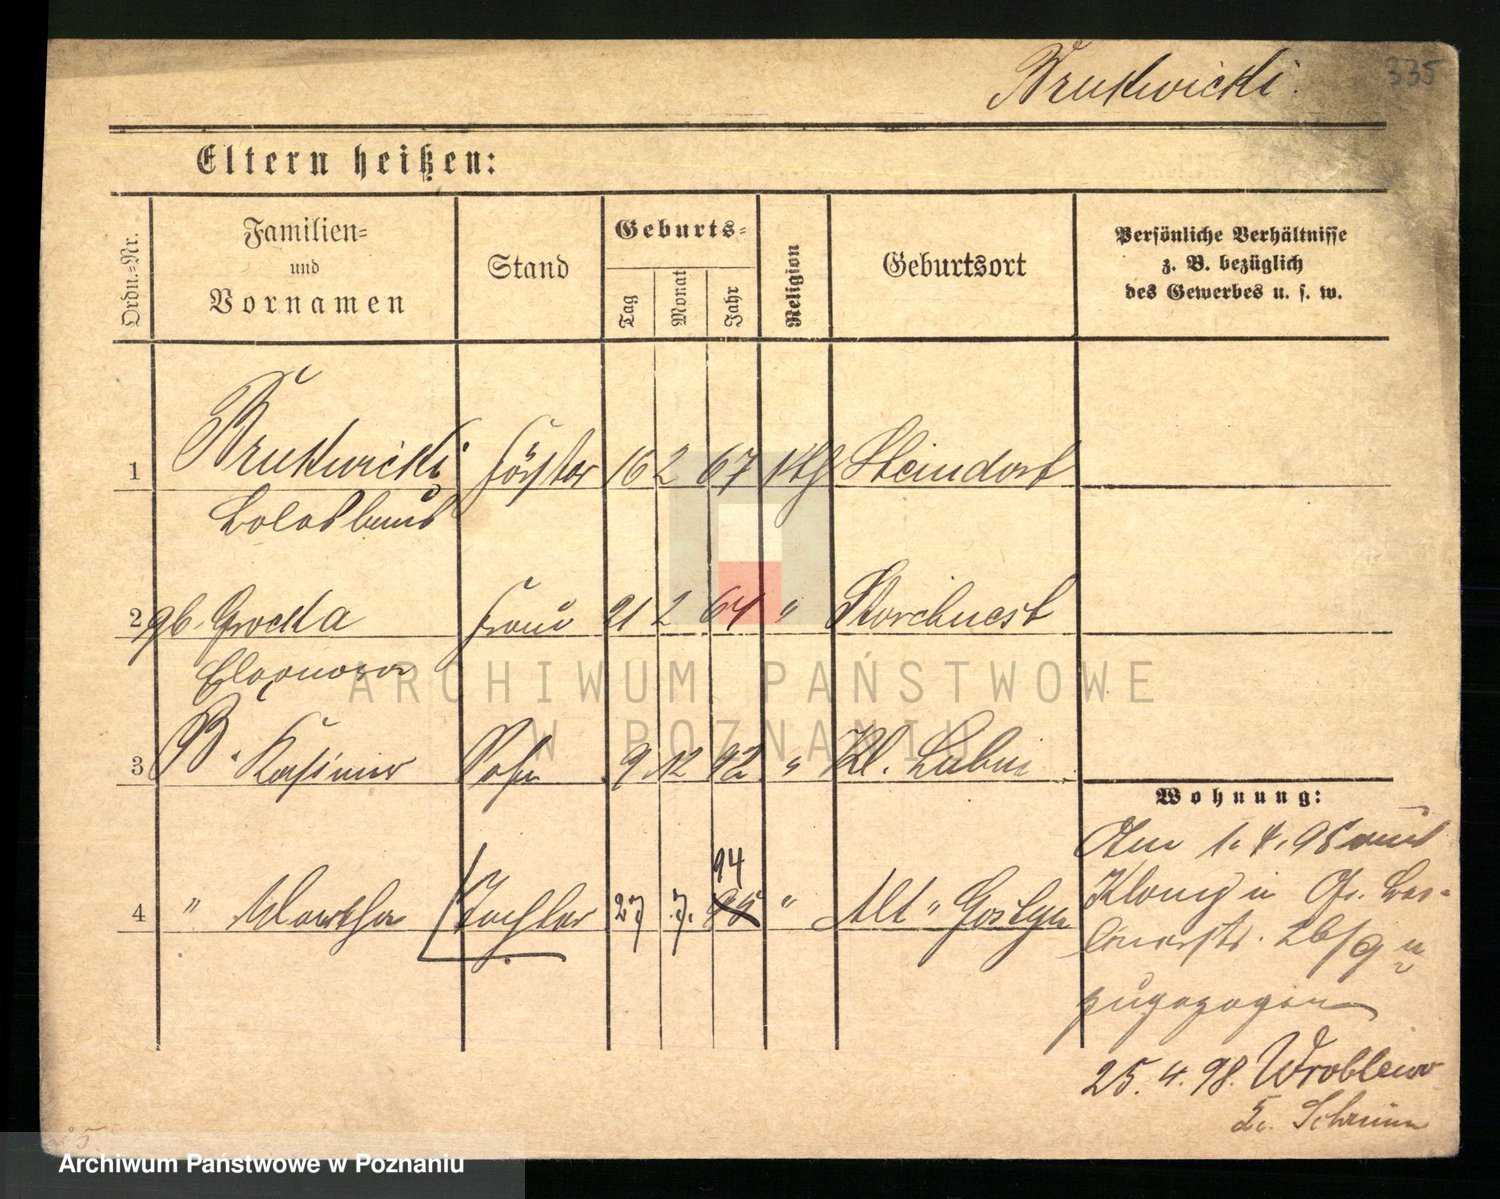 Brukwicki.
335
Eltern heißen:
Ordn.=Nr.
Familien=
und
Vornamen
Stand
Geburts=
Tag
Monat
Jahr
Religion
Geburtsort
Persönliche Verhältnisse
z. B. bezüglich
des Gewerbes u. s. w.
1 Brukwicki Förster 16 2 67 kth Steindorf
2 gb. Grocka Frau 21 2 64 " Storchnest
Eleonora
3 B. Kasimir Sohn 9 12 92 " Kl. Lubin
Wohnung:
94
4 " Martha Tochter 27 7. 95 " Alt Gostyn
Am 1. 4. 98 aus
in Gr.
26/9
zugezogen
25. 4. 98. Wroblewo
Schrimm
ARCHIWUM PAŃSTWOWE
W POZNANIU
Archiwum Państwowe w Poznaniu